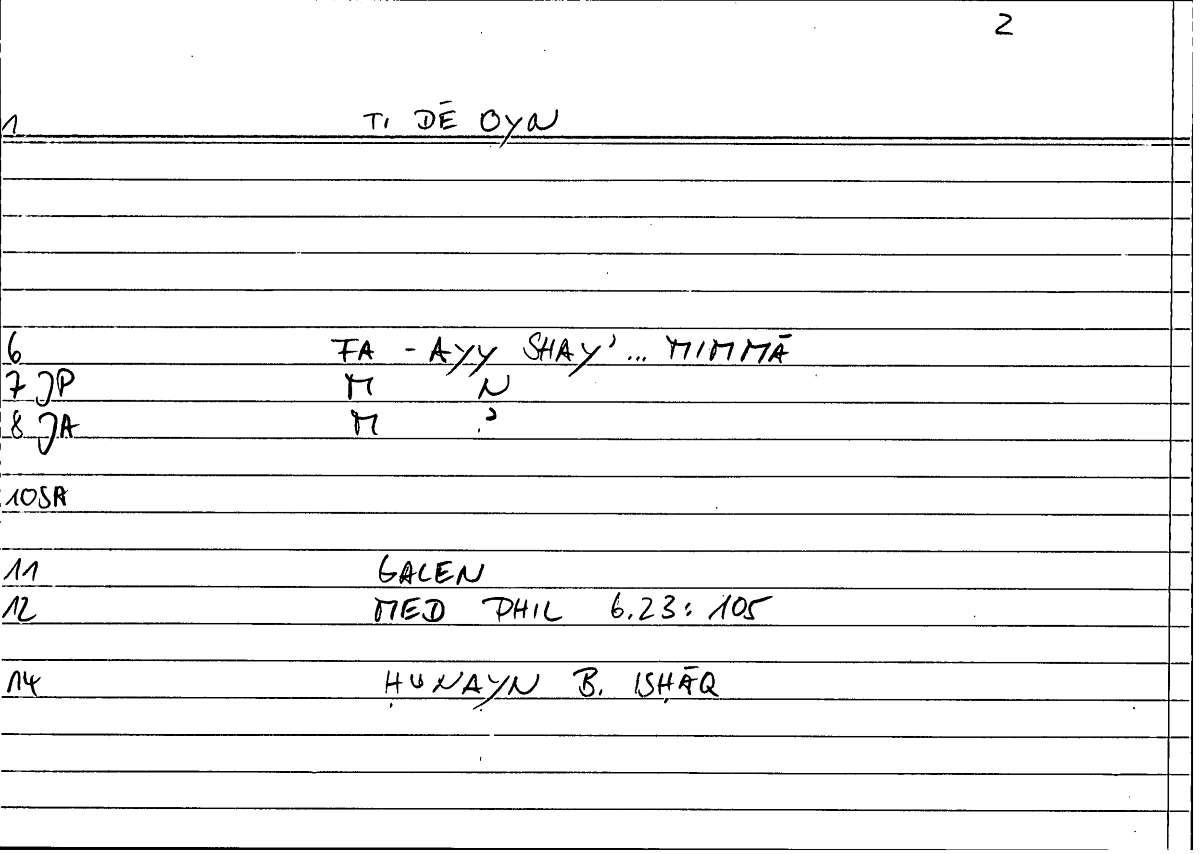 2
1 TI DĒ OYN
6 FA - AYY SHAY' ... MIMMĀ
7 JP M N
8 JA M ?
10SA
11 GALEN
12 MED PHIL 6.23: 105
14 ḤUNAYN B. ISḤĀQ